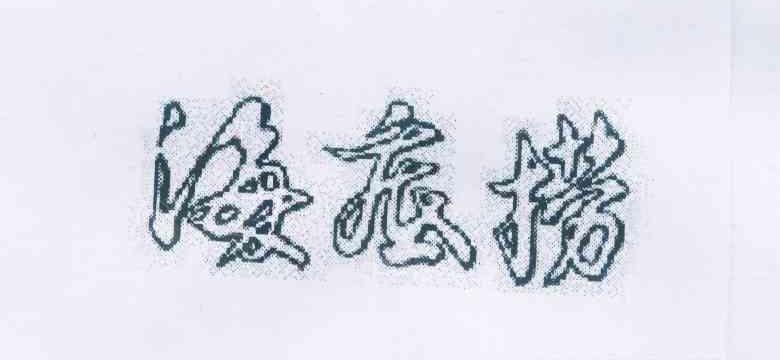 海底捞